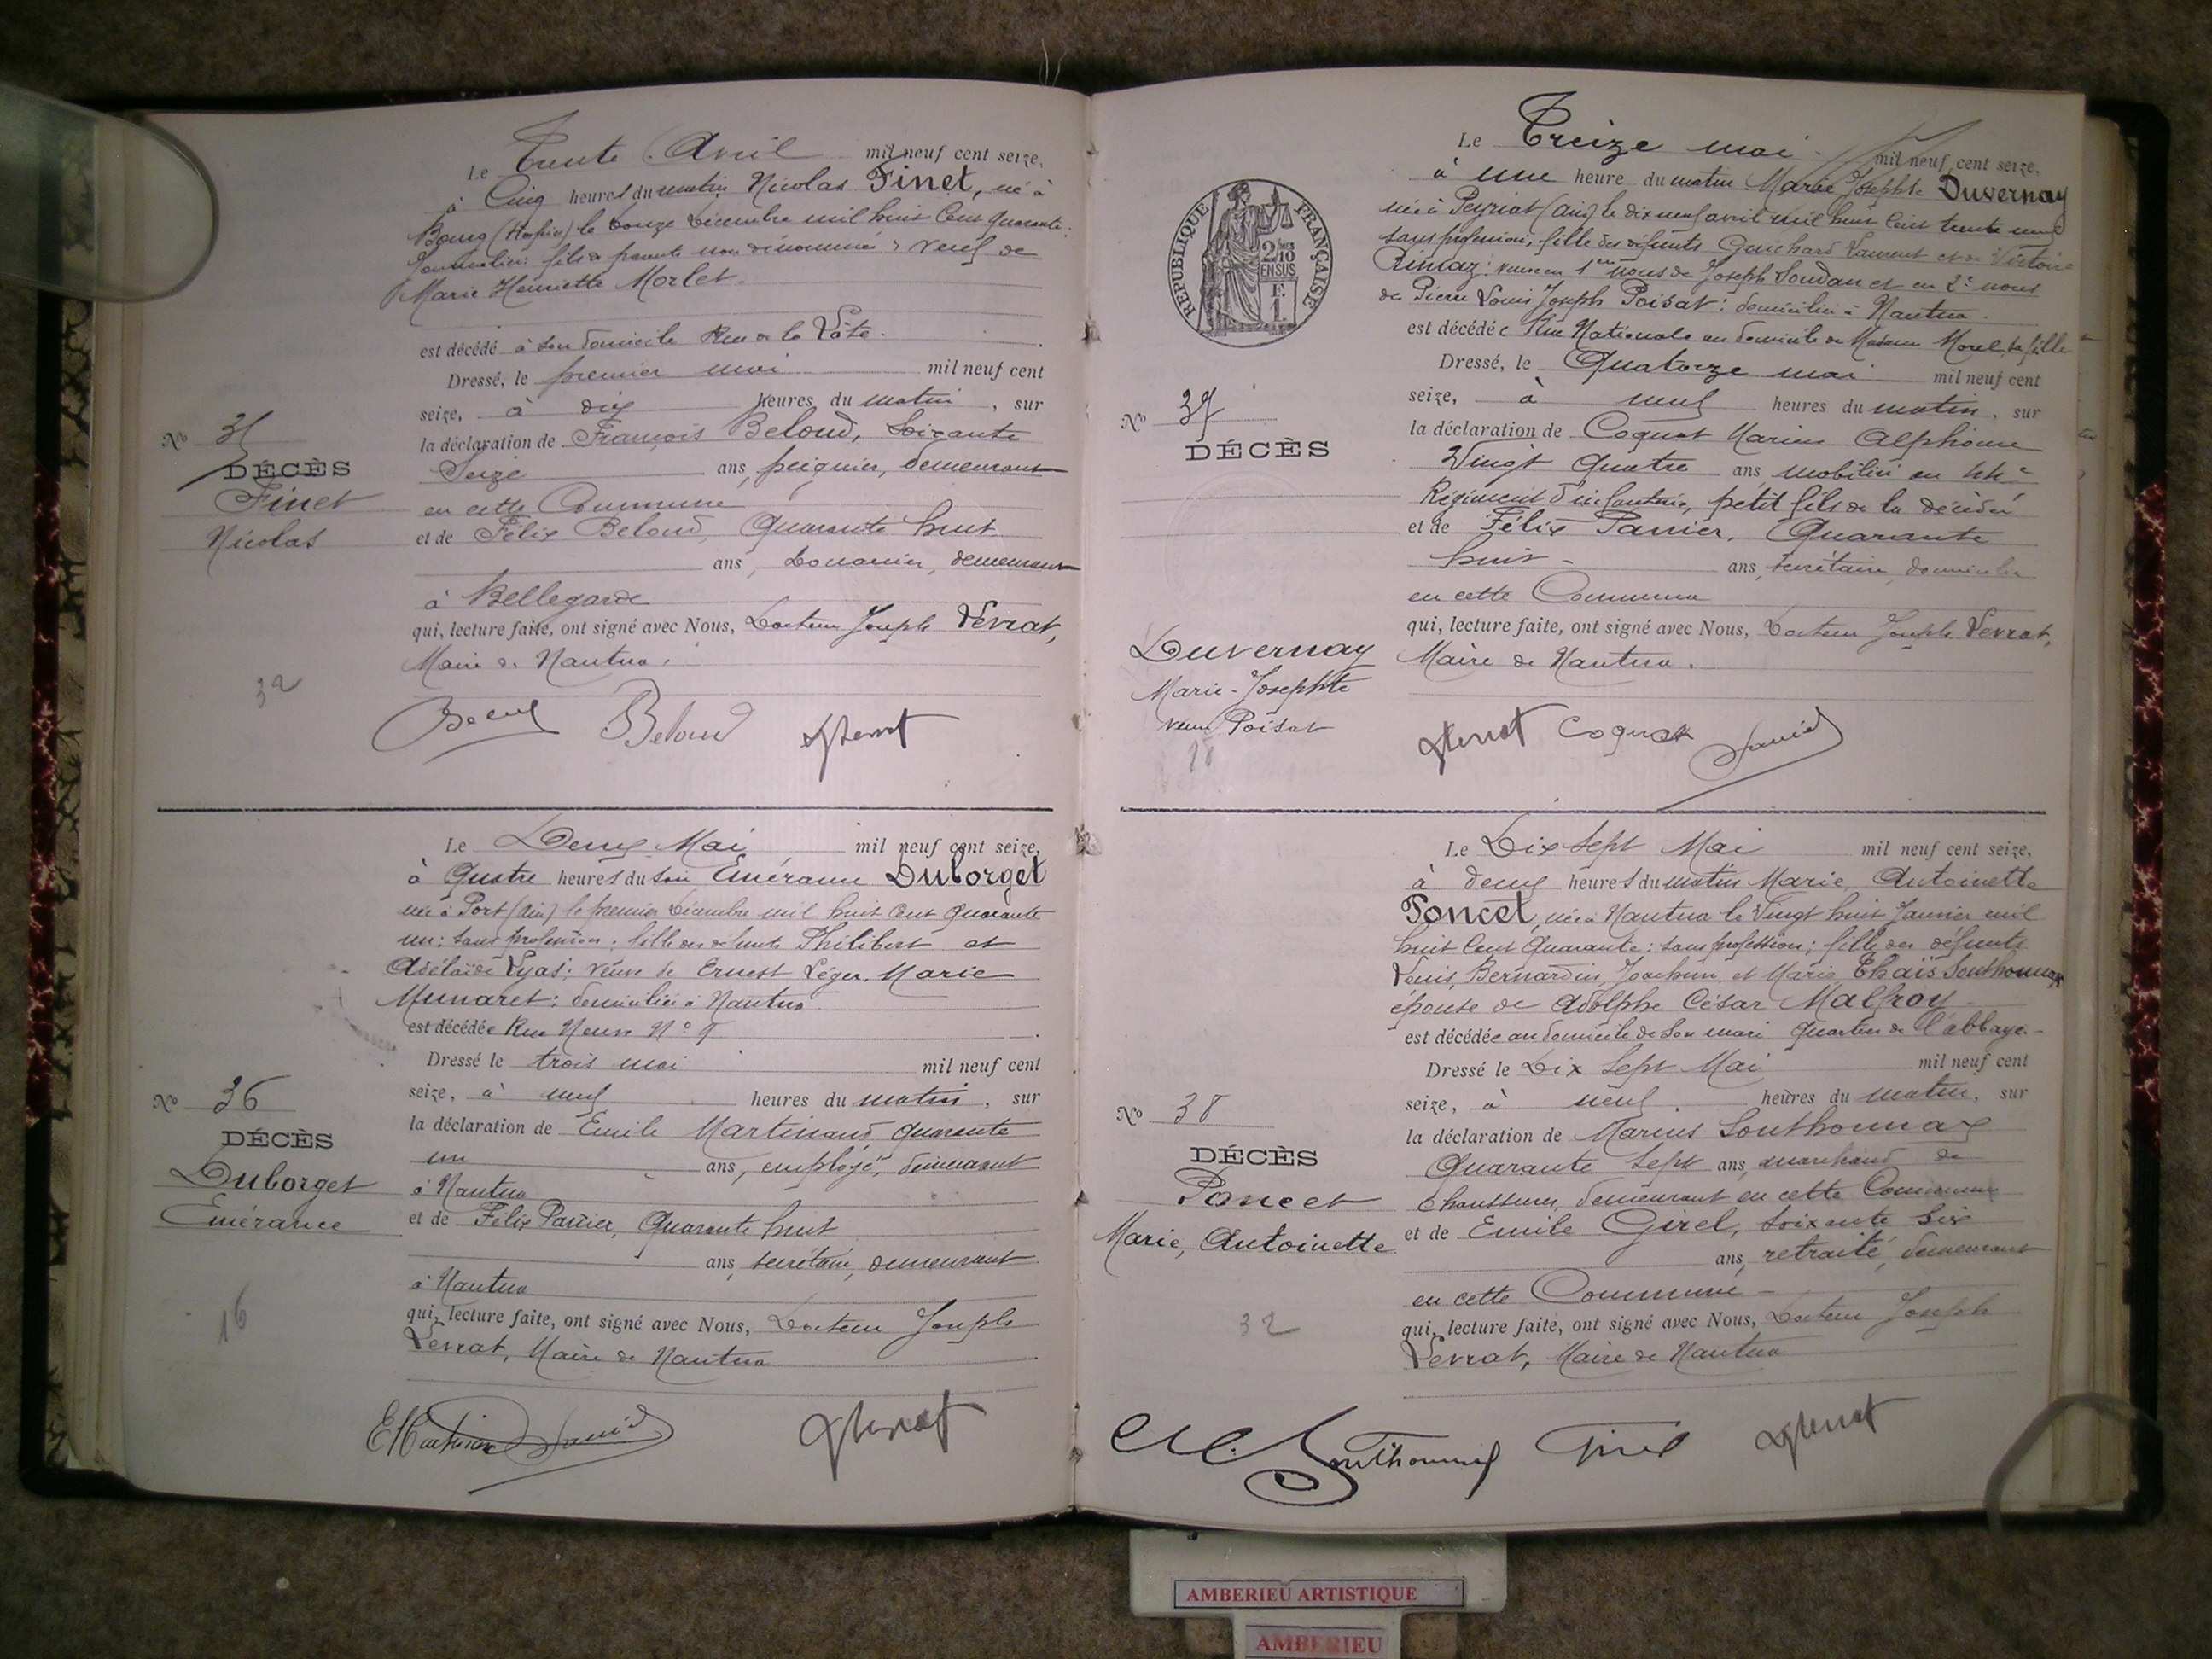 Le Trente Avril mil neuf cent seize,
à Cinq heures du matin Nicolas Finet, né à
Bourg (Hospice) le Douze Décembre mil huit Cent quarante :
Journalier : fils de parents non dénommés : Veuf de
Marie Henriette Morlet.
est décédé à son domicile Rue de la
Dressé, le premier mai mil neuf cent
seize, à dix heures du matin, sur
la déclaration de François Beloud, Soixante
Seize ans, peignier, demeurant
en cette Commune
et de Félix Beloud, Quarante huit
ans, Douanier, demeurant
à Bellegarde
qui, lecture faite, ont signé avec Nous, Docteur Joseph Levrat,
Maire de Nantua.
No 35
DÉCÈS
Finet
Nicolas
32
Beloud
Le Deux Mai mil neuf cent seize,
à Quatre heures du soir Emérance Duborget
née à Port (Ain) le premier Décembre mil huit Cent Quarante
un : sans profession : fille des défunts Philibert et
Adélaïde Lyas ; Veuve de Ernest Léger Marie
Munaret ; domiciliée à Nantua
est décédée Rue Neuve No 9
Dressé le trois mai mil neuf cent
seize, à neuf heures du matin, sur
la déclaration de Emile Martinand, quarante
un ans, employé, demeurant
à Nantua
et de Félix Panier, Quarante huit
ans, secrétaire, demeurant
à Nantua
qui, lecture faite, ont signé avec Nous, Docteur Joseph
Levrat, Maire de Nantua
No 36
DÉCÈS
Duborget
Emérance
16
Le Treize mai mil neuf cent seize,
à une heure du matin Marie Josephte Duvernay
née à Peyriat (Ain) le dix neuf avril mil huit Cent trente neuf
sans profession, fille des défunts Guichard Laurent et de Victoire
veuve en 1eres noces de Joseph Soudan et en 2e noces
de Pierre Louis Joseph Poisat ; domiciliée à Nantua.
est décédée Rue Nationale au domicile de Madame Morel sa fille
Dressé, le Quatorze mai mil neuf cent
seize, à neuf heures du matin, sur
la déclaration de Coquat Marius Alphonse
Vingt Quatre ans, mobilisé au 44e
Régiment d'infanterie, petit fils de la décédée
et de Félix Panier, Quarante
huit ans, secrétaire, domicilié
en cette Commune
qui, lecture faite, ont signé avec Nous, Docteur Joseph Levrat,
Maire de Nantua.
RÉPUBLIQUE FRANÇAISE
2/10
EN SUS
F.
1.
No 37
DÉCÈS
Duvernay
Marie-Josephte
veuve Poisat
18
Coquat
Le Dix sept Mai mil neuf cent seize,
à deux heures du matin Marie, Antoinette
Poncet, née à Nantua le Vingt huit Janvier mil
huit Cent Quarante : sans profession ; fille des défunts
Louis, Bernardin, Joachim et Marie Thaïs Southonnax
épouse de Adolphe César Malfroy
est décédée au domicile de son mari quartier de l'abbaye.
Dressé le Dix Sept Mai mil neuf cent
seize, à neuf heures du matin, sur
la déclaration de Marius Southonnax
Quarante Sept ans, marchand de
Chaussures, demeurant en cette Commune
et de Emile Girel, soixante six
ans, retraité, demeurant
en cette Commune
qui, lecture faite, ont signé avec Nous, Docteur Joseph
Levrat, Maire de Nantua
No 38
DÉCÈS
Poncet
Marie, Antoinette
32
M. Southonnax Girel
AMBERIEU ARTISTIQUE
AMBERIEU